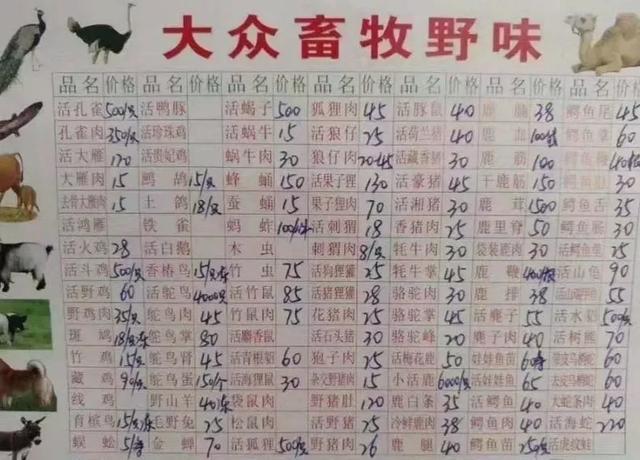 大众畜牧野味
品名 价格 品名 价格 品名 价格 品名 价格 品名 价格 品名 价格 品名 价格
活孔雀 500/只 活鸭豚 活蝎子 500 狐狸肉 45 活豚鼠 40 鹿 38 鳄鱼尾 45
孔雀肉 350/只 活珍珠鸡 活蜗牛 15 活狼仔 25 活荷兰猪 40 鹿血 鳄鱼掌 60
活大雁 120 活贵妃鸡 蜗牛肉 30 狼仔肉 活藏香猪 30 鹿筋 100 鳄鱼
大雁肉 15 鹧鸪 15/只 蜂蛹 150 活果子狸 130 活豪猪 45 干鹿筋 150 鳄鱼肚 30
去骨大雁肉 15 土鸽 18/只 蚕蛹 15 果子狸肉 70 活湘猪 30 鹿茸 1500 鳄鱼舌 35
活鸿雁 铁雀 蚂蚱 活刺猬 18 香猪肉 25 鹿里脊 50 鳄鱼肠 30
活火鸡 28 活白鹅 木虫 刺猬肉 8/只 牦牛肉 30 袋装鹿肉 30 活鳄鱼龟 25
活斗鸡 500/只 香椿鸟 竹虫 75 活狗狸獾 25 牦牛掌 45 鹿鞭 活山龟 90
活野鸡 60 活鸵鸟 4000/只 活竹鼠 85 活猪狸獾 28 骆驼肉 30 鹿排 38 55
野鸡肉 35/只 鸵鸟肉 45 竹鼠肉 75 花猪肉 25 骆驼掌 45 活麂子 55 活水貂 500/只
斑鸠 鸵鸟掌 80 活麝香鼠 活石头猪 30 骆驼峰 20 麂子肉 40 活树熊 70
竹鸡 15/只 鸵鸟肾 45 活青根貂 60 狍子肉 25 活梅花鹿 50 娃娃鱼苗 60
藏鸡 90/只 鸵鸟蛋 150/个 活海狸鼠 30 杂交野猪肉 15 小活鹿 6000/只 活娃娃鱼 65 60
线鸡 野山羊 袋鼠肉 野猪肚 120 鹿白条 35 活鳄鱼 40 大蛇条肉 40
育槟鸟 毛野兔 25 松鼠肉 活野猪 25 冷鲜鹿肉 38 鳄鱼肉 40 活海蛇 220
蜈蚣 金蝉 70 活狐狸 500/只 野猪肉 26 鹿腿 40 鳄鱼苗 活虎纹蛙